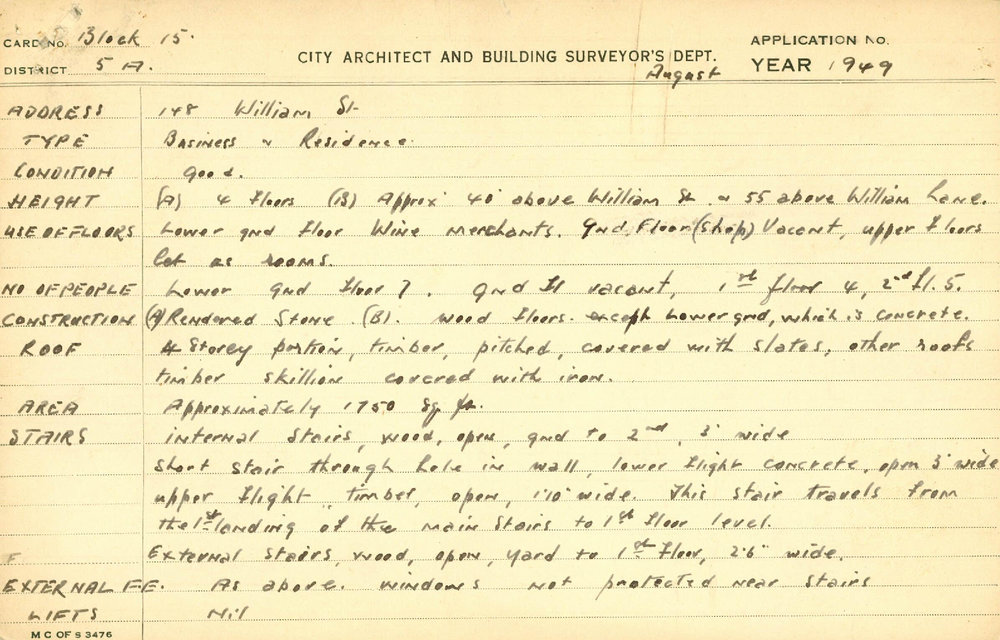 CARD No. Block 15.
CITY ARCHITECT AND BUILDING SURVEYOR'S DEPT.
APPLICATION No.
DISTRICT 5 A.
August
YEAR 1949
ADDRESS 148 William St
TYPE Business & Residence.
CONDITION Good.
HEIGHT (A) 4 floors (B) Approx 40' above William St. & 55 above William Lane.
USE OF FLOORS Lower gnd floor Wine merchants. Gnd, Floor (Shop) Vacant, upper floors
let as rooms.
NO OF PEOPLE Lower gnd floor 7. gnd fl vacant, 1st floor 4, 2nd fl. 5.
CONSTRUCTION (A) Rendered Stone. (B). wood floors. except Lower gnd, which is concrete.
ROOF 4 Storey portion, timber, pitched, covered with slates, other roofs
timber skillion covered with iron.
AREA Approximately 1750 Sq ft.
STAIRS internal Stairs, wood, open, gnd to 2nd, 3' wide
Short stair through hole in wall, lower flight concrete, open 3' wide
upper flight timber, open, 1'10" wide. This stair travels from
the 1st landing of the main stairs to 1st floor level.
F External stairs, wood, open, yard to 1st floor, 2'6" wide.
EXTERNAL F.E. As above. windows not protected near stairs
LIFTS Nil
M C OF S 3476